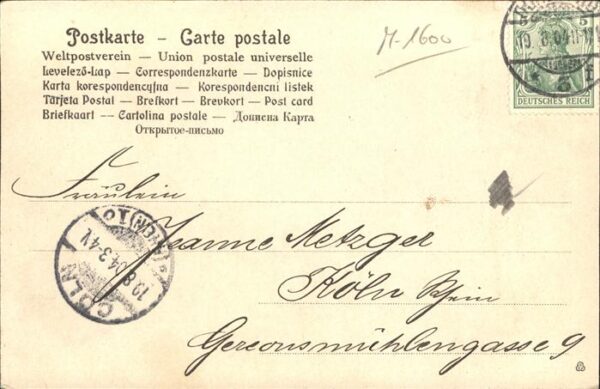 Postkarte — Carte postale
Weltpostverein — Union postale universelle
Levelező-Lap — Correspondenzkarte — Dopisnice
Karta korespondencyjna — Korespondencni listek
Tarjeta Postal — Brefkort — Brevkort — Post card
Briefkaart — Cartolina postale — Дописна Карта
Открытое-письмо
M-1600
5 5
DEUTSCHES REICH
Fräulein
Jeanne Metzger
Köln Rhein
Gereonsmühlengasse 9
CÖLN
19.8.04.3-4N